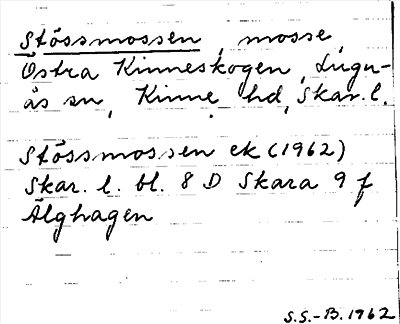 Stössmossen, mosse,
Östra Kinneskogen, Lugn-
ås sn, Kinne hd, Skar. l.
Stössmossen ek (1962)
Skar. l. bl. 8 D Skara 9 f
Älghagen
S.S.-B. 1962